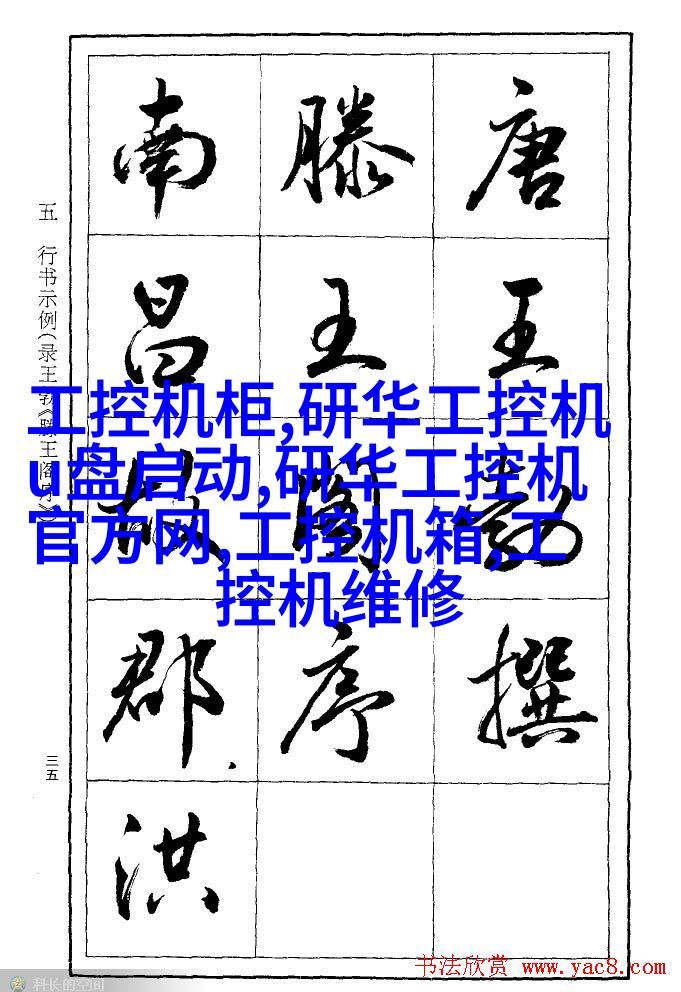 唐王勃撰
滕王阁序
南昌故郡.洪
五 行书示例(录王勃《滕王阁序》)
三五
工控机柜,研华工控机
u盘启动,研华工控机
官方网,工控机箱,工
控机维修
书法欣赏 www.yac8.com
科长的空间